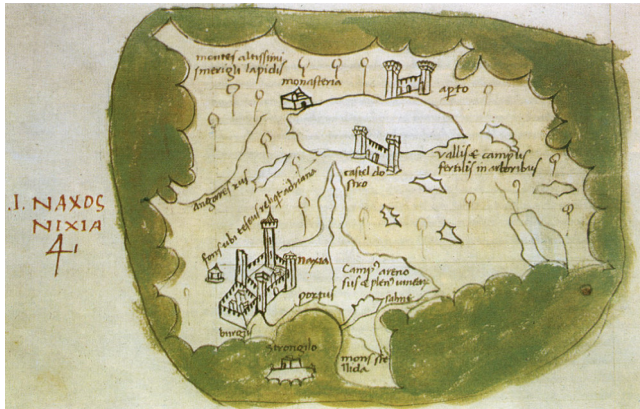 .I. NAXOS
NIXIA
4
montes altissimi
smerigli lapidis
monasteria
apto
vallis & campus
fertilis in arboribus
castel do
stro
fons ubi teseus reliqt adriana
naxia
Camp9 areno
sus & plen9 vinear
portus
saline
burgus
strongilo
mons ste
llida